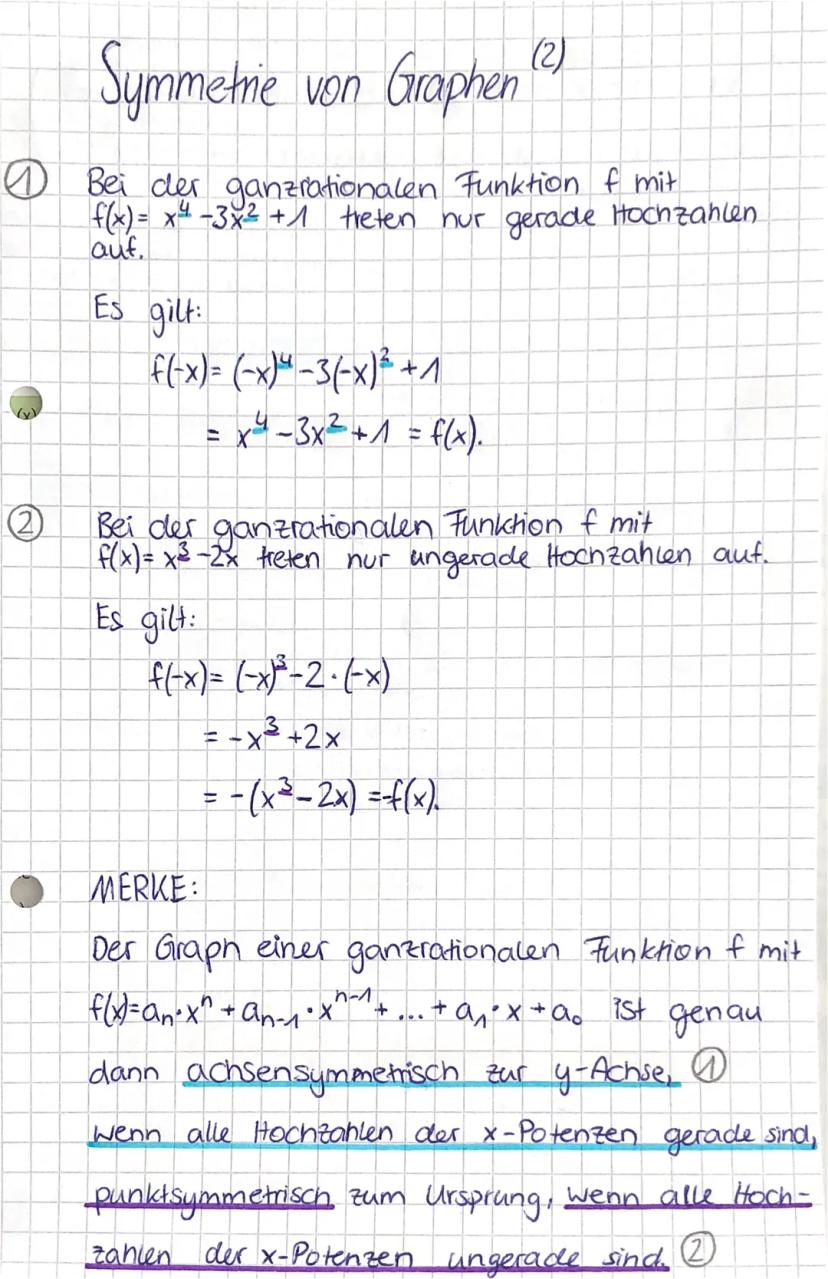 Symmetrie von Graphen (2)
① Bei der ganzrationalen Funktion f mit
f(x) = x⁴ -3x² +1 treten nur gerade Hochzahlen
auf.
Es gilt:
f(-x) = (-x)⁴ -3(-x)² +1
(x)
= x⁴ -3x² +1 = f(x).
② Bei der ganzrationalen Funktion f mit
f(x) = x³ -2x treten nur ungerade Hochzahlen auf.
Es gilt:
f(-x) = (-x)³ -2·(-x)
= -x³ +2x
= -(x³ -2x) = -f(x).
MERKE:
Der Graph einer ganzrationalen Funktion f mit
f(x)=aₙ·xⁿ + aₙ₋₁·xⁿ⁻¹ + ... + a₁·x + a₀ ist genau
dann achsensymmetrisch zur y-Achse, ①
wenn alle Hochzahlen der x-Potenzen gerade sind,
punktsymmetrisch zum Ursprung, wenn alle Hoch-
zahlen der x-Potenzen ungerade sind. ②